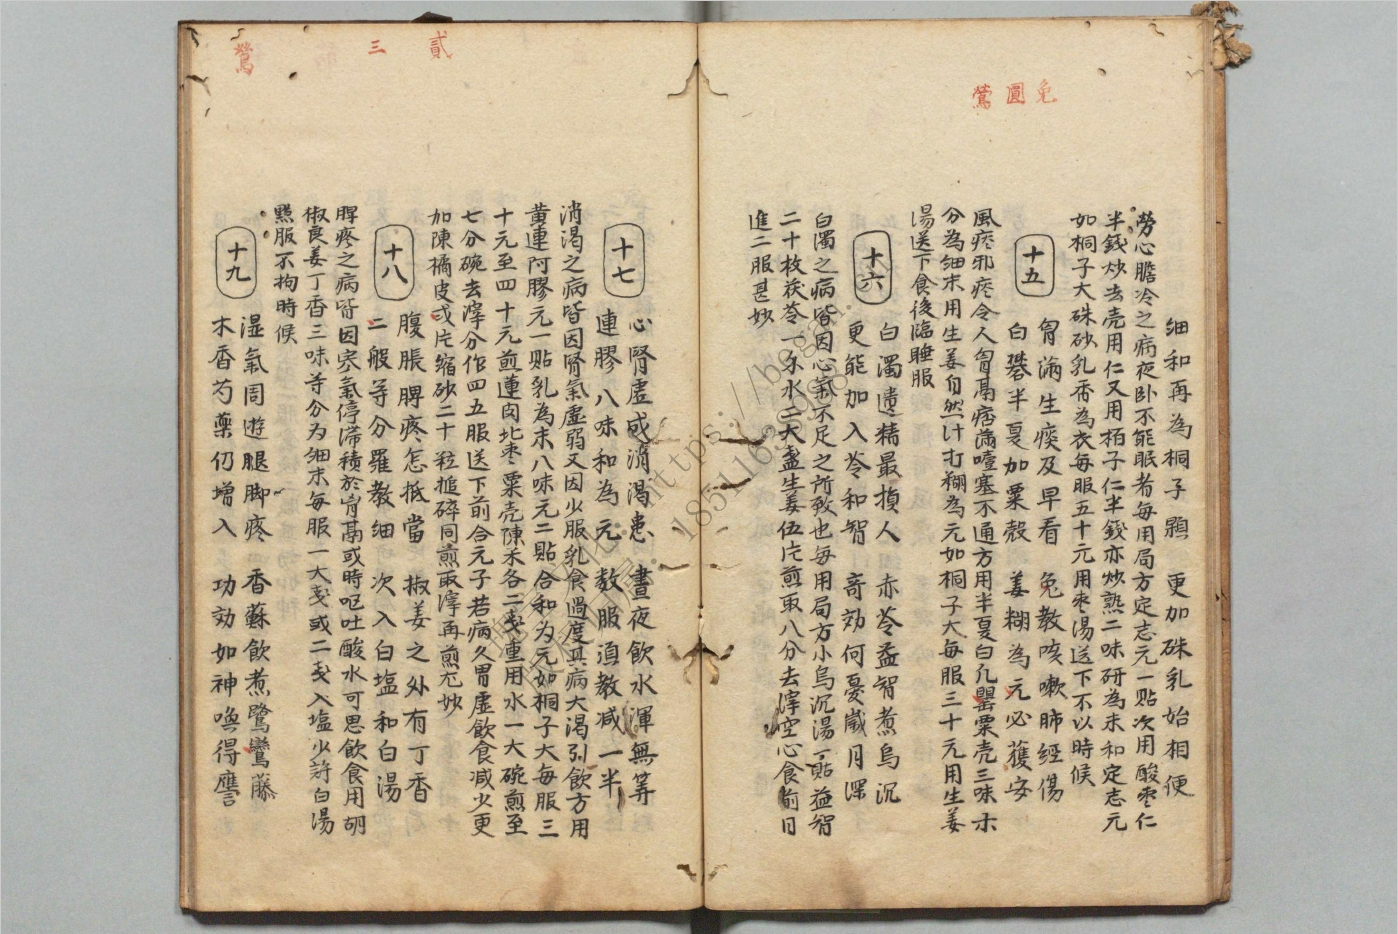 兔圓鶯
細和再為桐子顆　更加硃乳始相便
勞心膽冷之病夜卧不能眠者每用局方定志元一贴次用酸枣仁
半錢炒去壳用仁又用栢子仁半錢亦炒熟二味研為末和定志元
如桐子大硃砂乳香為衣每服五十元用枣湯送下不以時候
十五
胷滿生痰及早看　兔教咳嗽肺經傷
白礬半夏加粟殼　姜糊為元必獲安
風痰邪疾令人胷鬲痞滿噎塞不通方用半夏白凡罌粟壳三味木
分為細末用生姜自然汁打糊為元如桐子大每服三十元用生姜
湯送下食後臨睡服
十六
白濁遺精最損人　赤苓益智煮烏沉
更能加入苓和智　奇効何憂歲月深
白濁之病皆因心氣不足之所致也每用局方小烏沉湯一贴益智
二十枚茯苓一錢水二大盞生姜伍片煎取八分去滓空心食前日
進二服甚妙
貳三鶯
十七
心腎虛成消渴患　晝夜飲水渾無等
連膠八味和為元　数服須教减一半
消渴之病皆因腎氣虛弱又因少服乳食過度其病大渴引飲方用
黄連阿膠元一贴乳為末八味元二贴合和为元如桐子大每服三
十元至四十元煎蓮肉北枣粟壳陳禾各二戔重用水一大碗煎至
七分碗去滓分作四五服送下前合元子若病久胃虛飲食减少更
加陳橘皮戓片缩砂二十粒搥碎同煎取滓再煎尤妙
十八
腹脹脾疼怎抵當　椒姜之外有丁香
二般等分羅教細　次入白塩和白湯
脾疼之病皆因寒氣停滯積於胷鬲或時呕吐酸水可思飲食用胡
椒良姜丁香三味等分为细末每服一大戔或二戔入塩少許白湯
點服不拘時候
十九
湿氣周遊腿脚疼　香蘇飲煮鷺鸞藤
木香芍藥仍增入　功効如神喚得譍